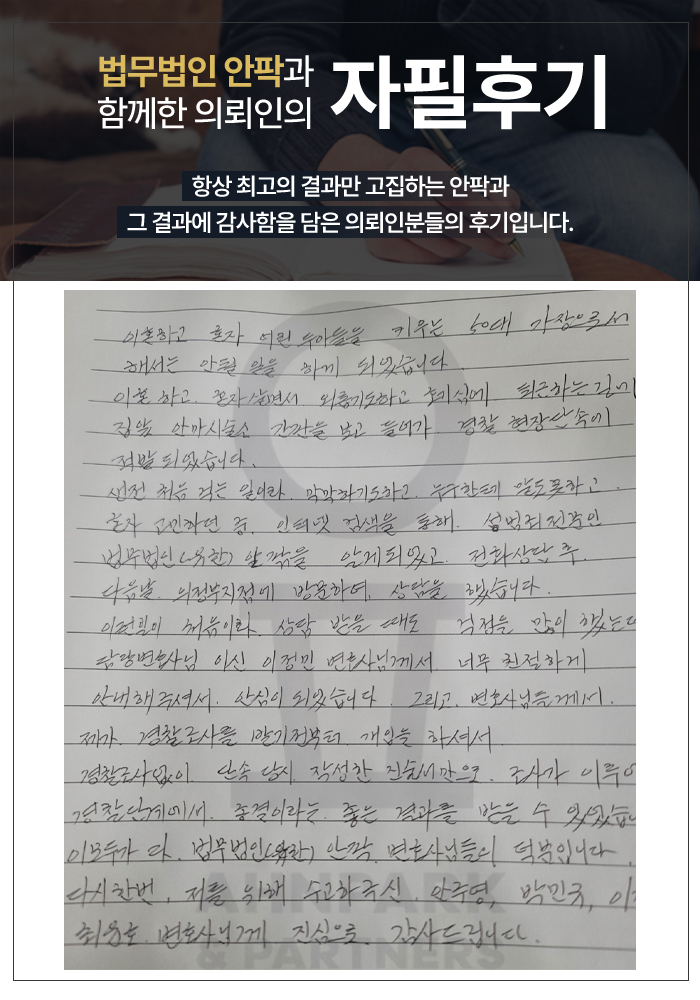 법무법인 안팍과
함께한 의뢰인의
자필후기
항상 최고의 결과만 고집하는 안팍과
그 결과에 감사함을 담은 의뢰인분들의 후기입니다.
이혼하고 혼자 어린 두아들을 키우는 50대 가장으로서
해서는 안될 일을 하게 되었습니다.
이혼하고. 혼자살면서 외롭기도하고 호기심에 퇴근하는길에
집앞 안마시술소 간판을 보고 들어가 경찰 현장단속에
적발되었습니다.
생전 처음 겪는 일이라. 막막하기도하고. 누구한테 말도못하고.
혼자 고민하던 중. 인터넷 검색을 통해. 성범죄전문인
법무법인(유한) 안팍을 알게되었고. 전화상담 후.
다음날. 의정부지점에 방문하여. 상담을 했습니다.
이런일이 처음이라. 상담 받을 때도 걱정을 많이 했는데
담당변호사님 이신 이정민 변호사님께서. 너무 친절하게
안내해주셔서. 안심이 되었습니다. 그리고. 변호사님들께서.
제가. 경찰조사를 받기전부터. 개입을 하셔서
경찰조사없이. 단속 당시. 작성한 진술서만으로. 조사가
경찰단계에서. 종결이라는. 좋은 결과를 받을 수 있었습니
이모두가 다. 법무법인(유한) 안팍. 변호사님들의 덕분입니다.
다시한번, 저를 위해 수고하국신. 안주영, 박민규,
변호사님께 진심으로. 감사드립니다.
AHNPARK
& PARTNERS